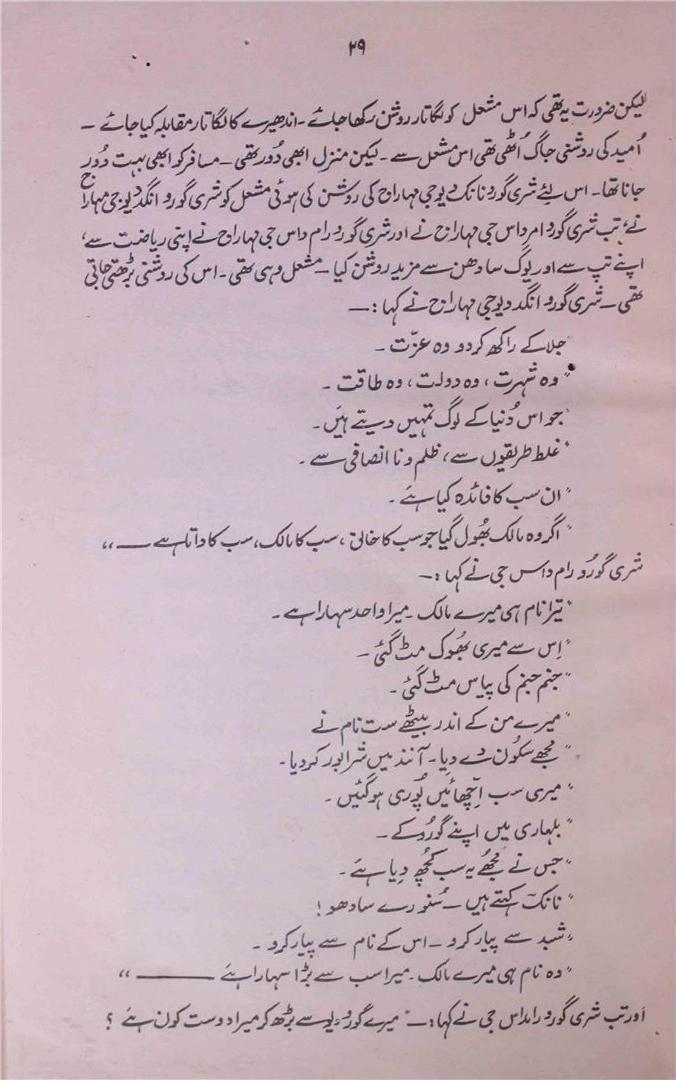 ۲۹
لیکن ضرورت یہ تھی کہ اس مشعل کو لگاتار روشن رکھا جائے۔ اندھیرے کا لگاتار مقابلہ کیا جائے۔
اُمید کی روشنی جاگ اُٹھی تھی اس مشعل سے۔ لیکن منزل ابھی دُور تھی۔ مسافر کو ابھی بہت دُور
جانا تھا۔ اس لئے شری گورو نانک دیو جی مہاراج کی روشن کی ہوئی مشعل کو شری گورو انگد دیو جی مہاراج
نے، تب شری گورو امرداس جی مہاراج نے اور شری گورو رام داس جی مہاراج نے اپنی ریاضت سے،
اپنے تپ سے اور یوگ سادھن سے مزید روشن کیا۔ مشعل وہی تھی۔ اس کی روشنی بڑھتی جاتی
تھی۔ شری گورو انگد دیو جی مہاراج نے کہا :۔
جلا کے راکھ کر دو وہ عزّت۔
"وہ شہرت، وہ دولت، وہ طاقت۔
"جو اس دُنیا کے لوگ تمہیں دیتے ہیں۔
"غلط طریقوں سے، ظلم و نا انصافی سے۔
"ان سب کا فائدہ کیا ہے۔
"اگر وہ مالک بھُول گیا جو سب کا خالق، سب کا مالک، سب کا داتا ہے ــــ"
شری گورُو رام داس جی نے کہا :۔
"تیرا نام ہی میرے مالک۔ میرا واحد سہارا ہے۔
"اِس سے میری بھُوک مٹ گئی۔
"جنم جنم کی پیاس مٹ گئی۔
"میرے من کے اندر بیٹھے ست نام نے
"مجھے سکُون دے دیا۔ آنند میں شرابور کر دیا۔
"میری سب اِچھائیں پُوری ہو گئیں۔
"بلہاری میں اپنے گورُو کے۔
"جس نے مجھُے یہ سب کچُھ دِیا ہے۔
"نانک کہتے ہیں۔ سُنو رے سادھو!
"شبد سے پیار کرو۔ اس کے نام سے پیار کرو۔
"وہ نام ہی میرے مالک۔ میرا سب سے بڑا سہارا ہے ــــــــ"
اور تب شری گورو رامداس جی نے کہا :۔ "میرے گورو دیو سے بڑھ کر میرا دوست کون ہے؟